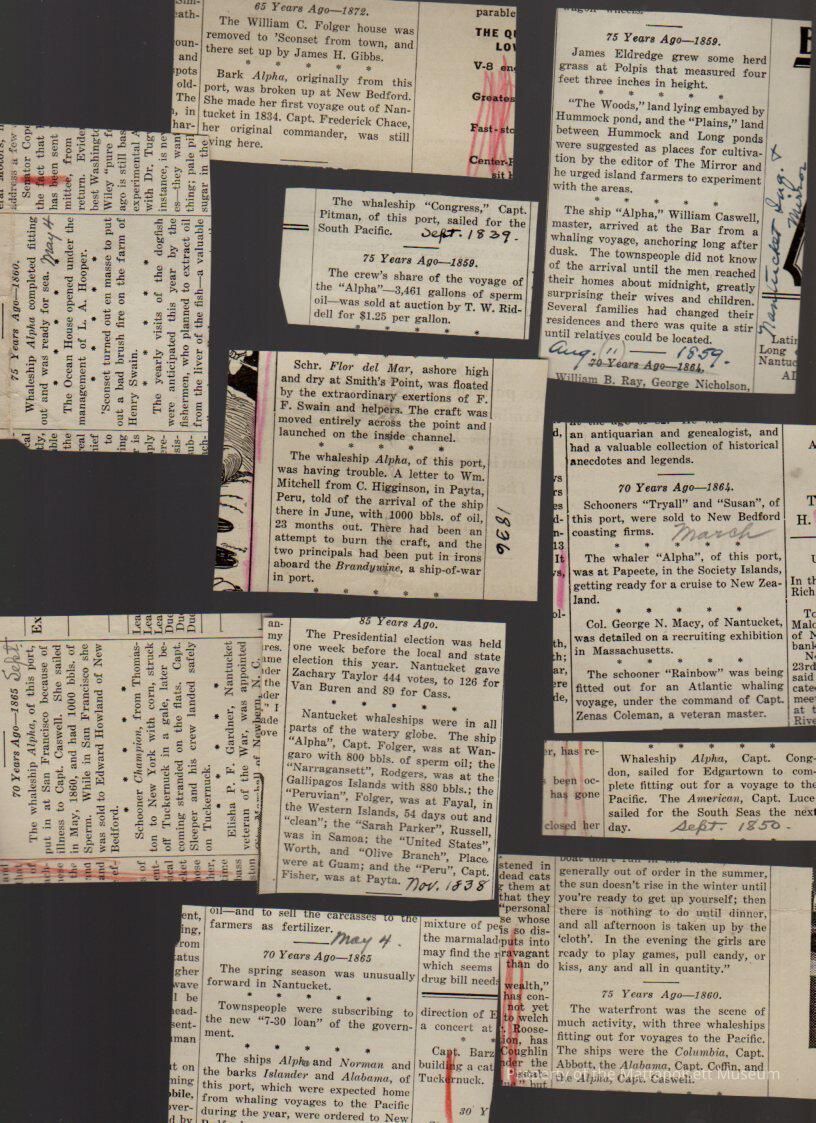 65 Years Ago—1872.
The William C. Folger house was
removed to 'Sconset from town, and
there set up by James H. Gibbs.
* * * * *
Bark Alpha, originally from this
port, was broken up at New Bedford.
She made her first voyage out of Nan-
tucket in 1834. Capt. Frederick Chace,
her original commander, was still
ving here.
parable
THE QU
LOV
V-8 en
Greates
Fast-sto
Center-P
sit b
75 Years Ago—1859.
James Eldredge grew some herd
grass at Polpis that measured four
feet three inches in height.
* * * * *
"The Woods," land lying embayed by
Hummock pond, and the "Plains," land
between Hummock and Long ponds
were suggested as places for cultiva-
tion by the editor of The Mirror and
he urged island farmers to experiment
with the areas.
* * * * *
The ship "Alpha," William Caswell,
master, arrived at the Bar from a
whaling voyage, anchoring long after
dusk. The townspeople did not know
of the arrival until the men reached
their homes about midnight, greatly
surprising their wives and children.
Several families had changed their
residences and there was quite a stir
until relatives could be located.
Aug. 11 — 1859.
70 Years Ago—1864.
William B. Ray, George Nicholson,
Nantucket Inq. &
Mirror
Latin
Long
Nantuc
address a few
Senator Cope
the fact that
has been sent
mittee, from
return. Evide
best Washingto
Wiley "pure f
ago is still bas
experimental A
with Dr. Tug
instance, is ne
cs—they want
thing; pale pil
sugar in the
75 Years Ago—1860.
May 4
Whaleship Alpha completed fitting
out and was ready for sea.
* * * * *
The Ocean House opened under the
management of L. A. Hooper.
* * * * *
'Sconset turned out en masse to put
out a bad brush fire on the farm of
Henry Swain.
* * * * *
The yearly visits of the dogfish
were anticipated this year by the
fishermen, who planned to extract oil
from the liver of the fish—a valuable
The whaleship "Congress," Capt.
Pitman, of this port, sailed for the
South Pacific. Sept. 1839.
75 Years Ago—1859.
The crew's share of the voyage of
the "Alpha"—3,461 gallons of sperm
oil—was sold at auction by T. W. Rid-
dell for $1.25 per gallon.
Schr. Flor del Mar, ashore high
and dry at Smith's Point, was floated
by the extraordinary exertions of F.
F. Swain and helpers. The craft was
moved entirely across the point and
launched on the inside channel.
* * * * *
The whaleship Alpha, of this port,
was having trouble. A letter to Wm.
Mitchell from C. Higginson, in Payta,
Peru, told of the arrival of the ship
there in June, with 1000 bbls. of oil,
23 months out. There had been an
attempt to burn the craft, and the
two principals had been put in irons
aboard the Brandywine, a ship-of-war
in port.
1836
an antiquarian and genealogist, and
had a valuable collection of historical
anecdotes and legends.
70 Years Ago—1864.
Schooners "Tryall" and "Susan", of
this port, were sold to New Bedford
coasting firms. March
* * * * *
The whaler "Alpha", of this port,
was at Papeete, in the Society Islands,
getting ready for a cruise to New Zea-
land.
* * * * *
Col. George N. Macy, of Nantucket,
was detailed on a recruiting exhibition
in Massachusetts.
* * * * *
The schooner "Rainbow" was being
fitted out for an Atlantic whaling
voyage, under the command of Capt.
Zenas Coleman, a veteran master.
70 Years Ago—1865 Sept
The whaleship Alpha, of this port,
put in at San Francisco because of
illness to Capt. Caswell. She sailed
in May, 1860, and had 1000 bbls. of
Sperm. While in San Francisco she
was sold to Edward Howland of New
Bedford.
* * * * *
Schooner Champion, from Thomas-
ton to New York with corn, struck
off Tuckernuck in a gale, later be-
coming stranded on the flats. Capt.
Sleeper and his crew landed safely
on Tuckernuck.
* * * * *
Elisha P. F. Gardner, Nantucket
veteran of the War, was appointed
of Newbern, N. C.
85 Years Ago.
The Presidential election was held
one week before the local and state
election this year. Nantucket gave
Zachary Taylor 444 votes, to 126 for
Van Buren and 89 for Cass.
* * * * *
Nantucket whaleships were in all
parts of the watery globe. The ship
"Alpha", Capt. Folger, was at Wan-
garo with 800 bbls. of sperm oil; the
"Narragansett", Rodgers, was at the
Gallipagos Islands with 880 bbls.; the
"Peruvian", Folger, was at Fayal, in
the Western Islands, 54 days out and
"clean"; the "Sarah Parker", Russell,
was in Samoa; the "United States",
Worth, and "Olive Branch", Place,
were at Guam; and the "Peru", Capt.
Fisher, was at Payta. Nov. 1838
er, has re-
been oc-
has gone
closed her
* * * * *
Whaleship Alpha, Capt. Cong-
don, sailed for Edgartown to com-
plete fitting out for a voyage to the
Pacific. The American, Capt. Luce
sailed for the South Seas the next
day. Sept. 1850.
generally out of order in the summer,
the sun doesn't rise in the winter until
you're ready to get up yourself; then
there is nothing to do until dinner,
and all afternoon is taken up by the
'cloth'. In the evening the girls are
ready to play games, pull candy, or
kiss, any and all in quantity."
75 Years Ago—1860.
The waterfront was the scene of
much activity, with three whaleships
fitting out for voyages to the Pacific.
The ships were the Columbia, Capt.
Abbott, the Alabama, Capt. Coffin, and
the Alpha, Capt. Caswell.
oil—and to sell the carcasses to the
farmers as fertilizer.
May 4.
70 Years Ago—1865
The spring season was unusually
forward in Nantucket.
* * * * *
Townspeople were subscribing to
the new "7-30 loan" of the govern-
ment.
* * * * *
The ships Alpha and Norman and
the barks Islander and Alabama, of
this port, which were expected home
from whaling voyages to the Pacific
during the year, were ordered to New
mixture of pe
the marmalad
may find the r
which seems
drug bill needs
direction of E
a concert at
Capt. Barz
building a cat
Tuckernuck.
30 Y
Property of the Mattapoisett Museum